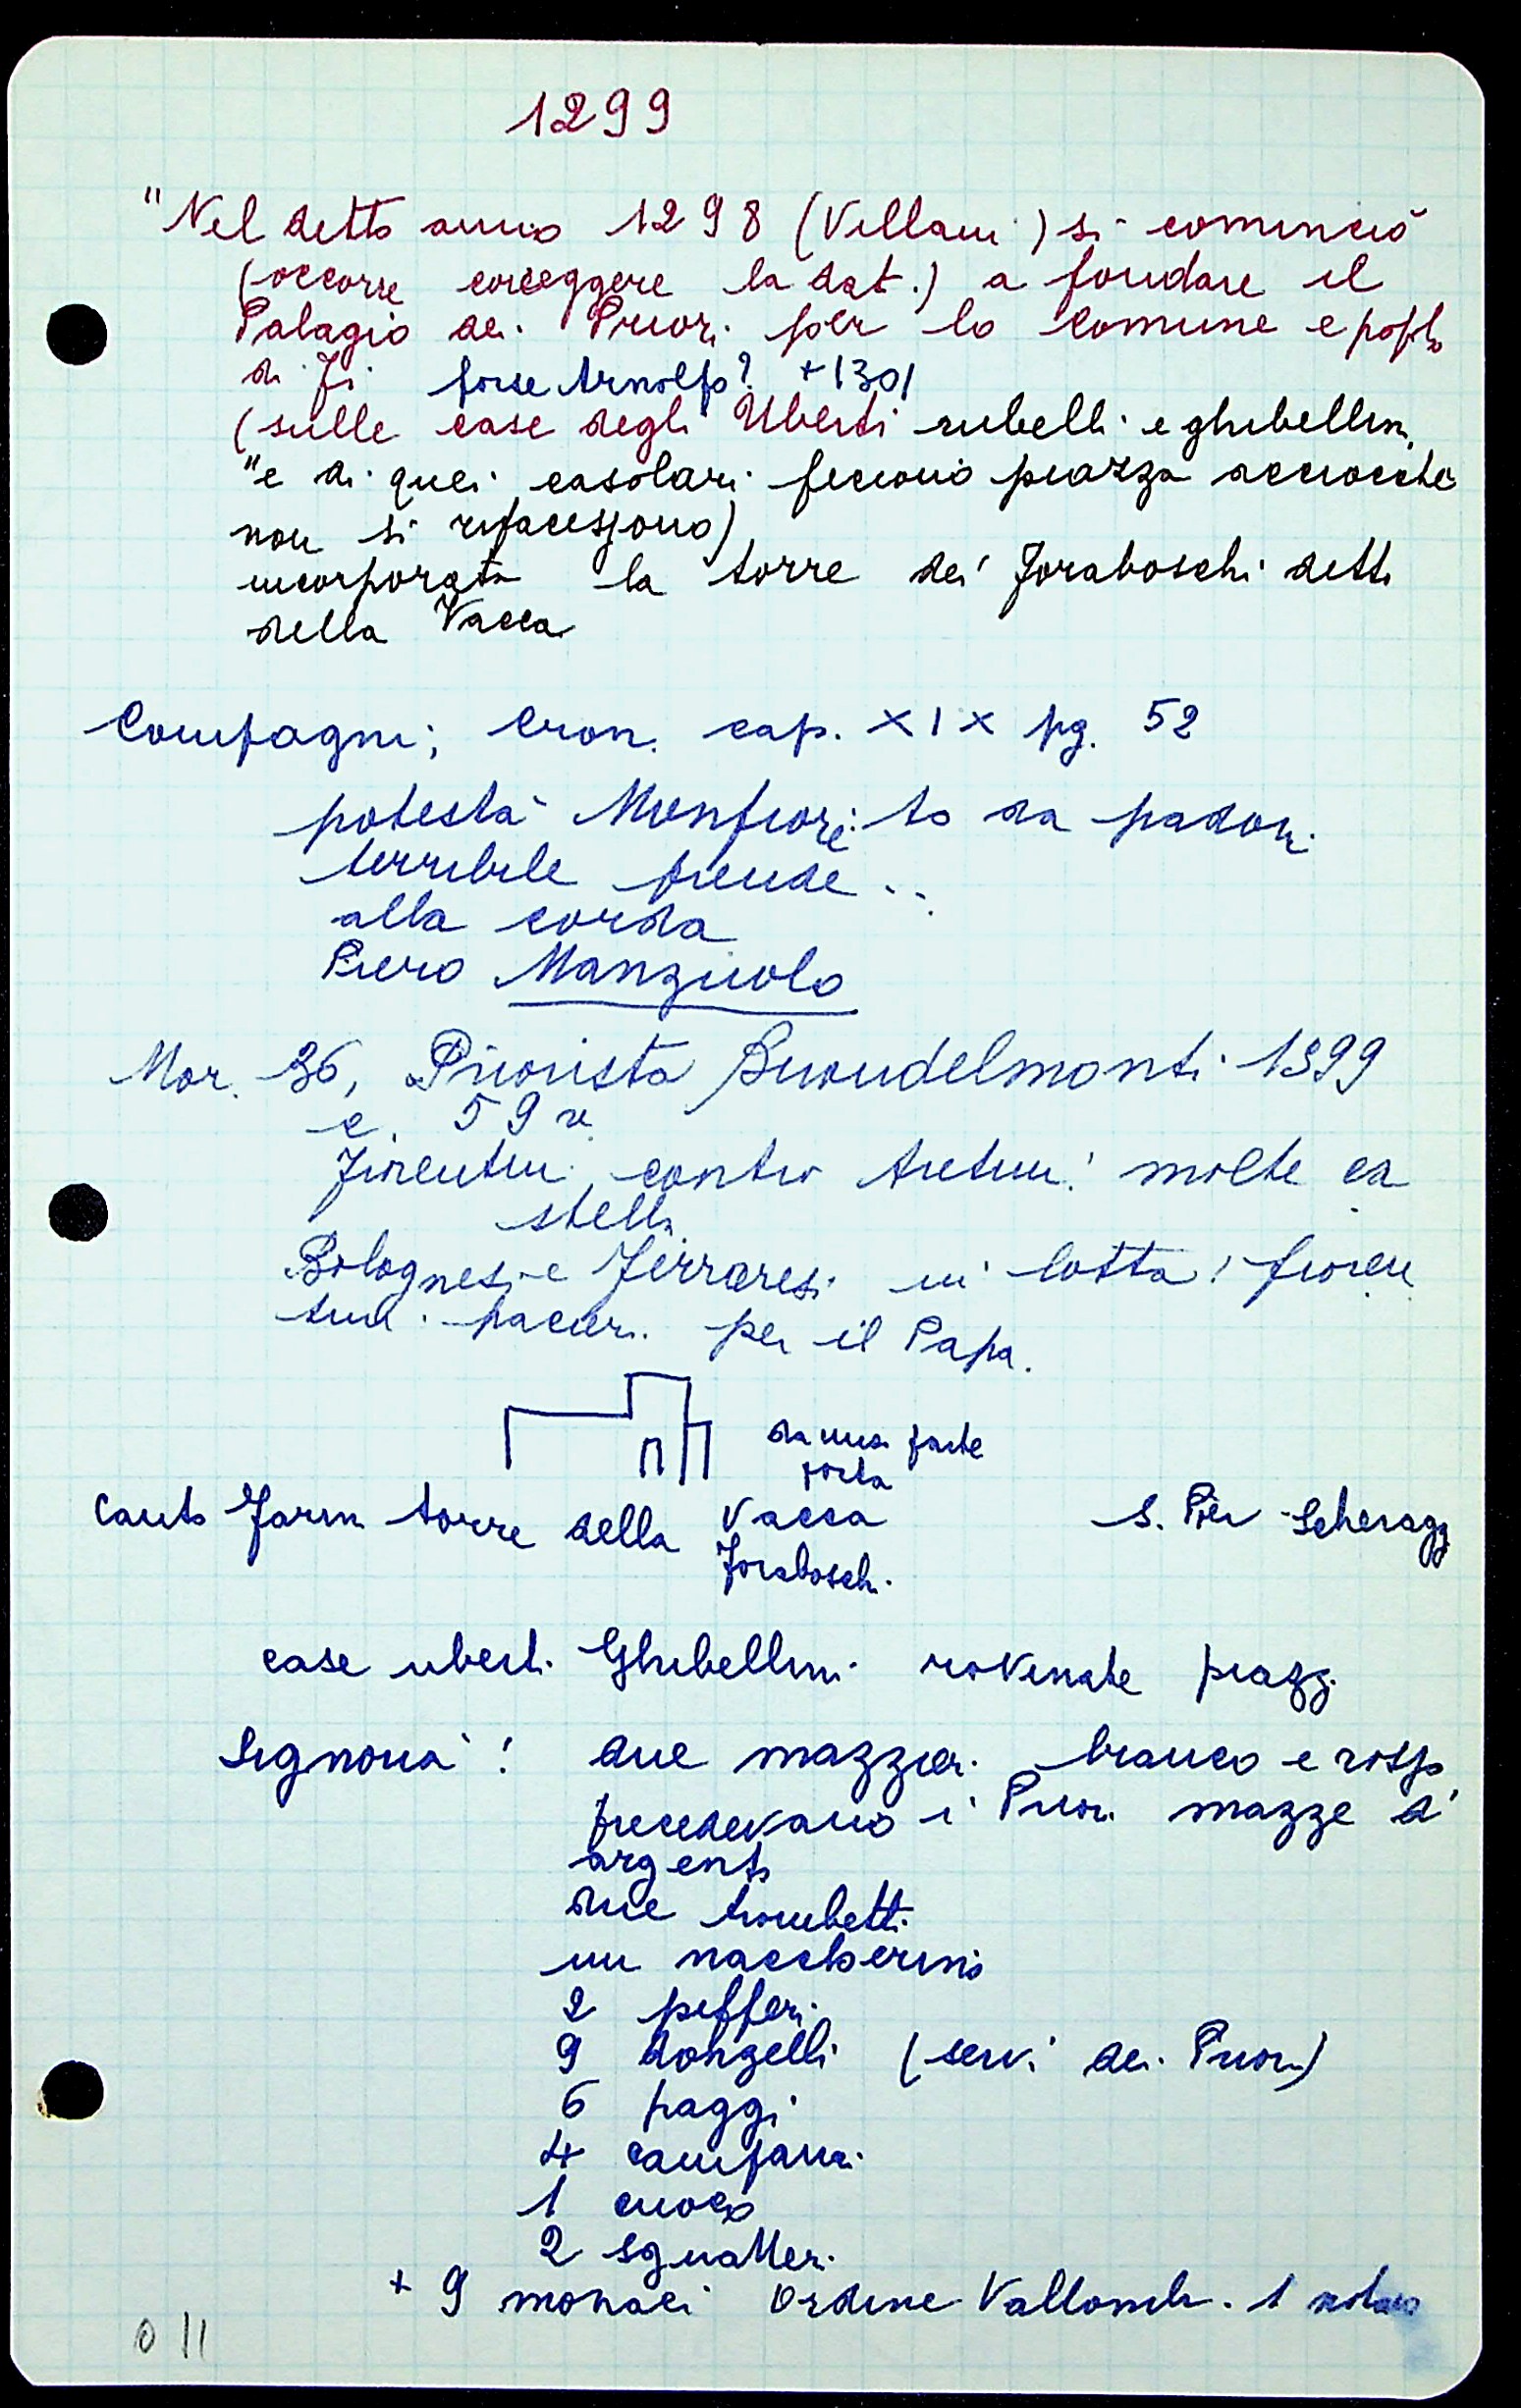 1299
"Nel detto anno 1298 (Villani) si cominciò
(occorre correggere la dat.) a fondare il
Palagio dei Priori per lo Comune e poplo
di Fi forse Arnolfo? +1301
(sulle case degli Uberti rubelli e ghibellini
"e di quei casolari feciono piazza acciocché
non si rifacessono)
incorporata la torre dei Foraboschi detta
della Vacca
Compagni; Cron. cap. XIX pg. 52
potestà Monfiorito da padov.
terribile prende ..
alla corda
Piero Manzuolo
Mor. 36, Priorista Buondelmonti 1399
c. 59 v.
Fiorentini contro Aretini! molte ca
stella
Bolognesi e Ferraresi in lotta! fioren
tini pacieri per il Papa.
da una parte
porta
Canto Farin torre della Vacca S. Pier Scheragg
Foraboschi
case uberti Ghibellini rovinate piazz.
Signoria! due mazzieri bianco e rosso
precedevano i Priori mazze d'
argento
due trombetti
un naccherino
2 pifferi
9 donzelli (servi dei Priori)
6 paggi
4 campanai
1 cuoco
2 sguatteri
+ 9 monaci Ordine Vallomb. 1 notaio
0 11